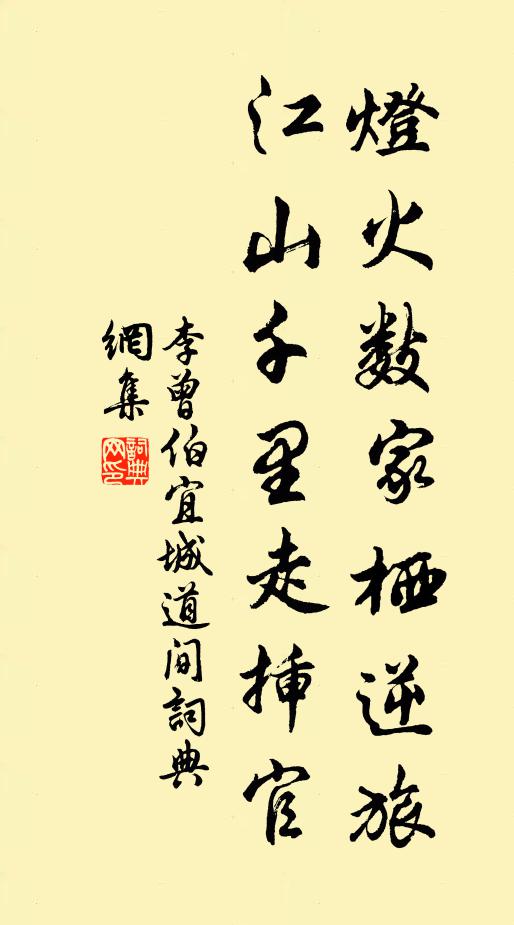 燈火数家栖逆旅
江山千里走挿官
李曾伯宜城道間詞典
網集
詞典
网印